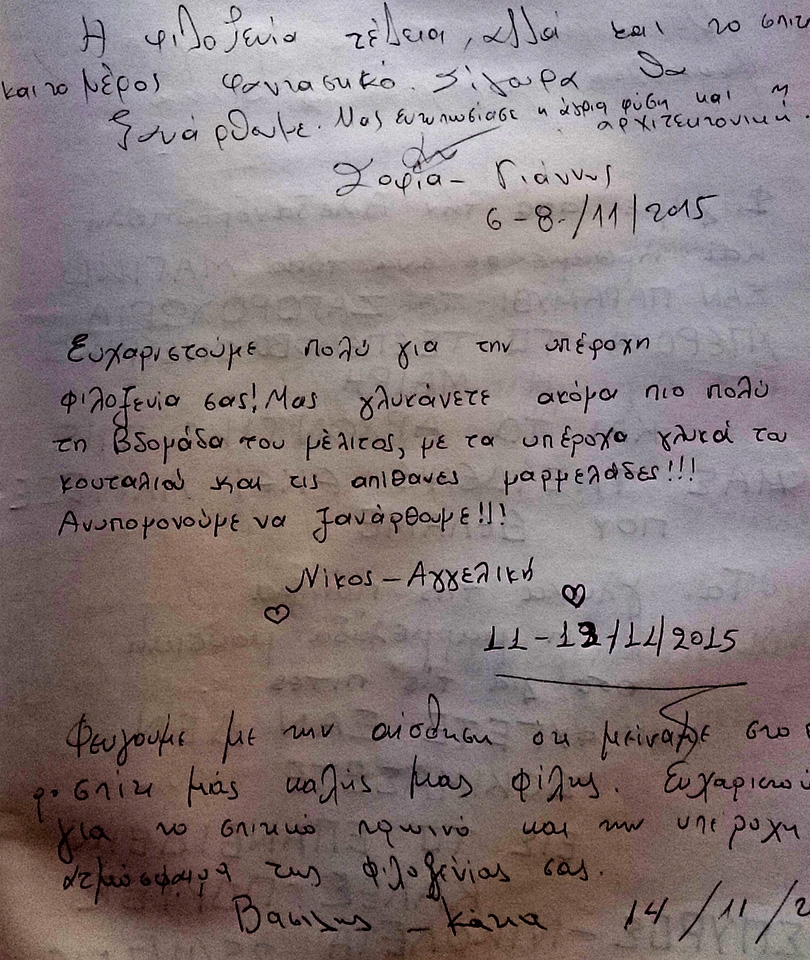 Η φιλοξενία τέλεια, αλλά και το σπίτι
και το μέρος φανταστικό. Σίγουρα θα
ξανάρθουμε. Μας εντυπωσίασε η άγρια φύση και η
αρχιτεκτονική.
Σοφία - Γιάννης
6 - 8 /11/2015
Ευχαριστούμε πολύ για την υπέροχη
φιλοξενία σας! Μας γλυκάνετε ακόμα πιο πολύ
τη βδομάδα του μέλιτος, με τα υπέροχα γλυκά του
κουταλιού και τις απίθανες μαρμελάδες!!!
Ανυπομονούμε να ξανάρθουμε!!!
Νίκος - Αγγελική
11 - /11/2015
Φεύγουμε με την αίσθηση ότι μείναμε στο
σπίτι μιάς καλής μας φίλης.
για το σπιτικό πρωινό και την υπέροχη
ατμόσφαιρα της φιλοξενίας σας.
Βασίλης - Κάκια 14/11/2